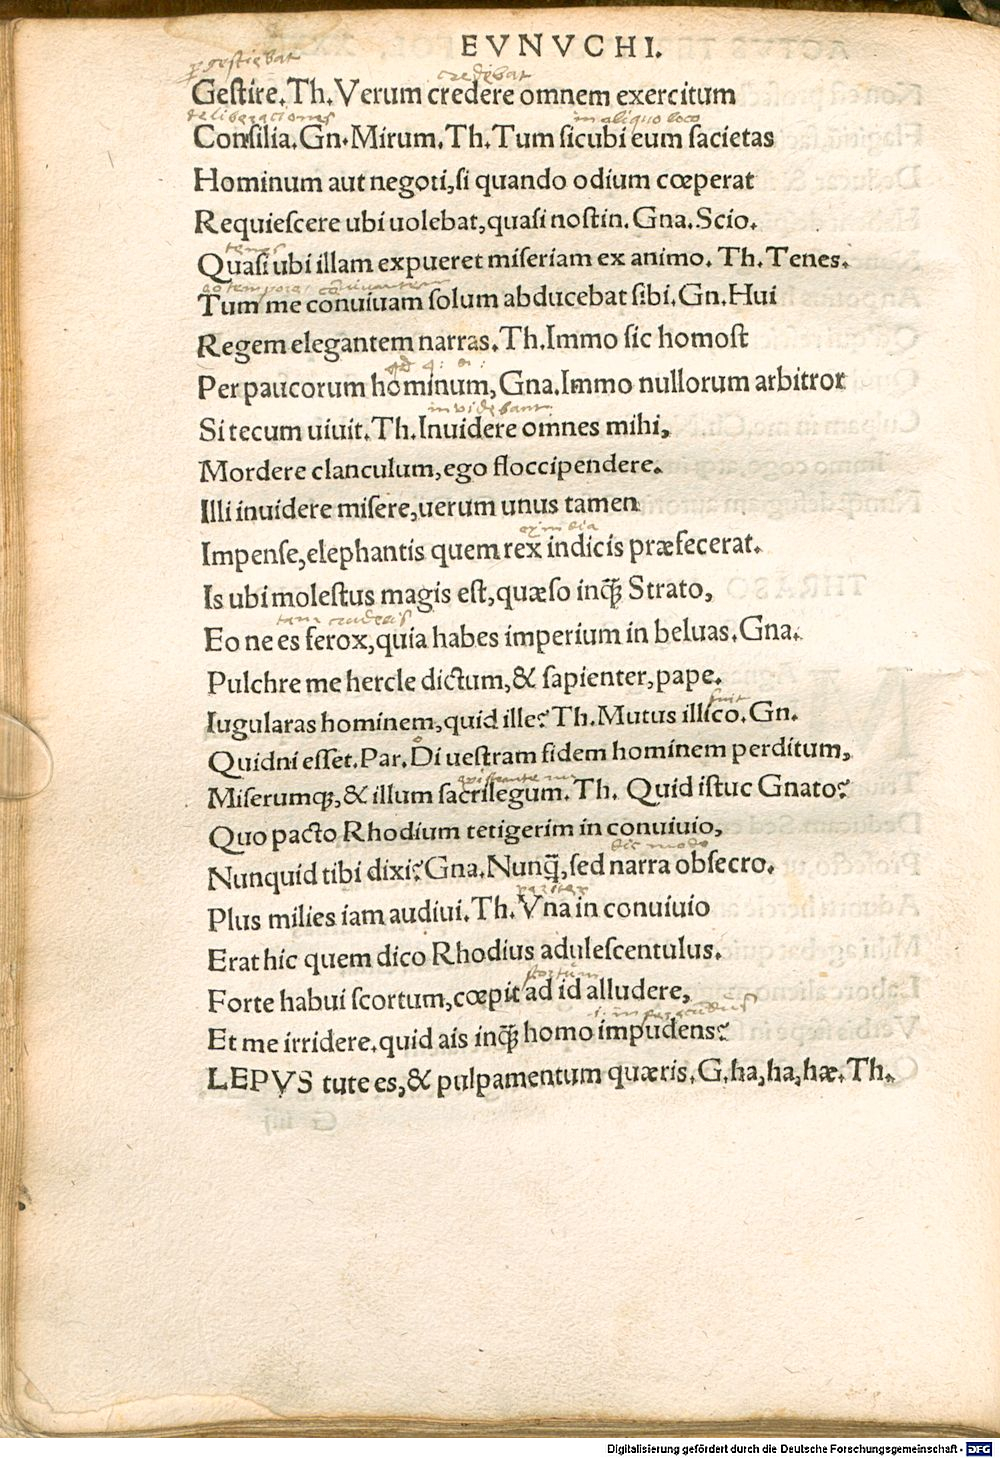 EVNVCHI.
gestiebat credebat
Geſtire. Th. Verum credere omnem exercitum
deliberationes in aliquo loco
Conſilia. Gn. Mirum. Th. Tum ſicubi eum ſacietas
Hominum aut negoti, ſi quando odium cœperat
Requieſcere ubi uolebat, quaſi noſtin. Gna. Scio.
tenes
Quaſi ubi illam expueret miſeriam ex animo. Th. Tenes.
eo tempore conuiuantem
Tum me conuiuam ſolum abducebat ſibi. Gn. Hui
Regem elegantem narras. Th. Immo ſic homoſt
Per paucorum hominum, Gna. Immo nullorum arbitror
invidebant
Si tecum uiuit. Th. Inuidere omnes mihi,
Mordere clanculum, ego floccipendere.
Illi inuidere miſere, uerum unus tamen
ex india
Impenſe, elephantis quem rex indicis præfecerat.
Is ubi moleſtus magis eſt, quæſo inq̃ Strato,
tam crudelis
Eo ne es ferox, quia habes imperium in beluas. Gna.
Pulchre me hercle dictum, & ſapienter, pape.
fuit
Iugularas hominem, quid ille? Th. Mutus illico. Gn.
o
Quidni eſſet. Par. Di ueſtram fidem hominem perditum,
Miſerumq;, & illum ſacrilegum. Th. Quid iſtuc Gnato?
Quo pacto Rhodium tetigerim in conuiuio,
dic modo
Nunquid tibi dixi? Gna. Nunq̃, ſed narra obſecro.
pariter
Plus milies iam audiui. Th. Vna in conuiuio
Erat hic quem dico Rhodius aduleſcentulus.
scortum
Forte habui ſcortum, cœpit ad id alludere,
Et me irridere. quid ais inq̃ homo impudens?
LEPVS tute es, & pulpamentum quæris. G. ha, ha, hæ. Th.
Digitalisierung gefördert durch die Deutsche Forschungsgemeinschaft - DFG